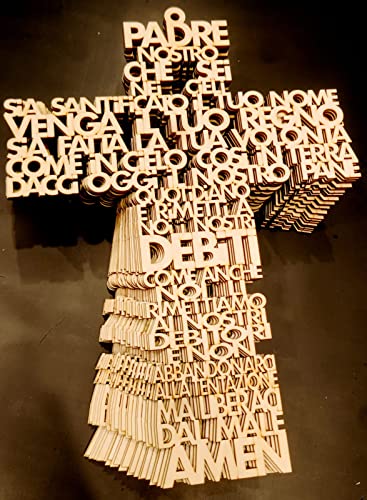 PADRE
NOSTRO
CHE SEI
NEI CIELI
SiA SANTIFICATO IL TUO NOME
VENGA IL TUO REGNO
SiA FATTA LA TUA VOLONTA
COME iN CIELO COSI iN TERRA
DACCI OGGI IL NOSTRO PANE
QUOTIDIANO
E RIMETTI A
NOI I NOSTRI
DEBITI
COME ANCHE
NOI LI
RIMETTIAMO
AI NOSTRI
DEBITORI
E NON
ABBANDONARCI
ALLA TENTAZIONE
MA LIBERACI
DAL MALE
AMEN